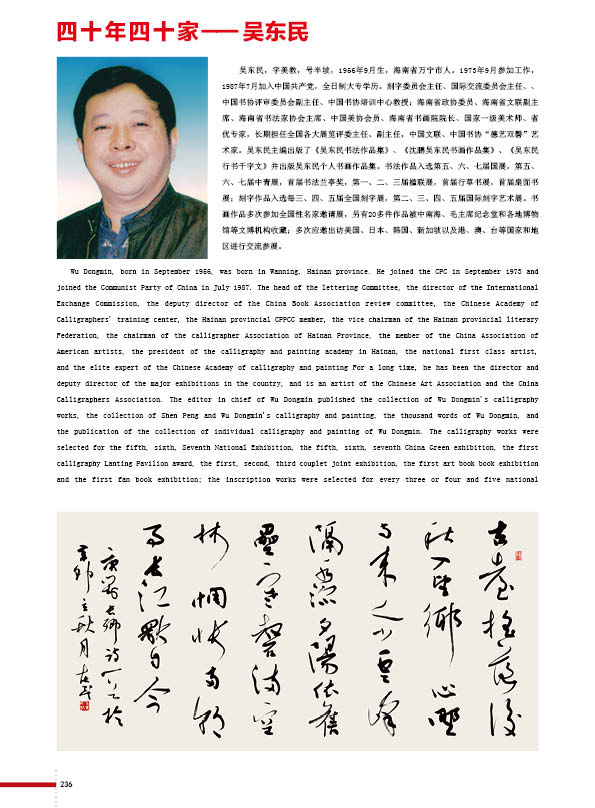 四十年四十家——吴东民
吴东民，字美教，号半坡，1956年9月生，海南省万宁市人。1973年9月参加工作，
1987年7月加入中国共产党，全日制大专学历。刻字委员会主任、国际交流委员会主任、、
中国书协评审委员会副主任、中国书协培训中心教授；海南省政协委员、海南省文联副主
席、海南省书法家协会主席、中国美协会员、海南省书画院院长、国家一级美术师、省
优专家，长期担任全国各大展览评委主任、副主任，中国文联、中国书协“德艺双馨”艺
术家。吴东民主编出版了《吴东民书法作品集》、《沈鹏吴东民书画作品集》、《吴东民
行书千字文》并出版吴东民个人书画作品集。书法作品入选第五、六、七届国展，第五、
六、七届中青展，首届书法兰亭奖，第一、二、三届楹联展，首届行草书展，首届扇面书
展；刻字作品入选每三、四、五届全国刻字展，第二、三、四、五届国际刻字艺术展。书
画作品多次参加全国性名家邀请展，另有20多件作品被中南海、毛主席纪念堂和各地博物
馆等文博机构收藏；多次应邀出访美国、日本、韩国、新加坡以及港、澳、台等国家和地
区进行交流参展。
Wu Dongmin, born in September 1956, was born in Wanning, Hainan province. He joined the CPC in September 1973 and
joined the Communist Party of China in July 1987. The head of the lettering Committee, the director of the International
Exchange Commission, the deputy director of the China Book Association review committee, the Chinese Academy of
Calligraphers' training center, the Hainan provincial CPPCC member, the vice chairman of the Hainan provincial literary
Federation, the chairman of the calligrapher Association of Hainan Province, the member of the China Association of
American artists, the president of the calligraphy and painting academy in Hainan, the national first class artist,
and the elite expert of the Chinese Academy of calligraphy and painting For a long time, he has been the director and
deputy director of the major exhibitions in the country, and is an artist of the Chinese Art Association and the China
Calligraphers Association. The editor in chief of Wu Dongmin published the collection of Wu Dongmin's calligraphy
works, the collection of Shen Peng and Wu Dongmin's calligraphy and painting, the thousand words of Wu Dongmin, and
the publication of the collection of individual calligraphy and painting of Wu Dongmin. The calligraphy works were
selected for the fifth, sixth, Seventh National Exhibition, the fifth, sixth, seventh China Green exhibition, the first
calligraphy Lanting Pavilion award, the first, second, third couplet joint exhibition, the first art book book exhibition
and the first fan book exhibition; the inscription works were selected for every three or four and five national
古臺摇落後
秋入望鄉心野
寺來人少雲峰
隔水深夕陽依舊
壘寒磬滿空
林惆悵南朝
事長江獨自今
236